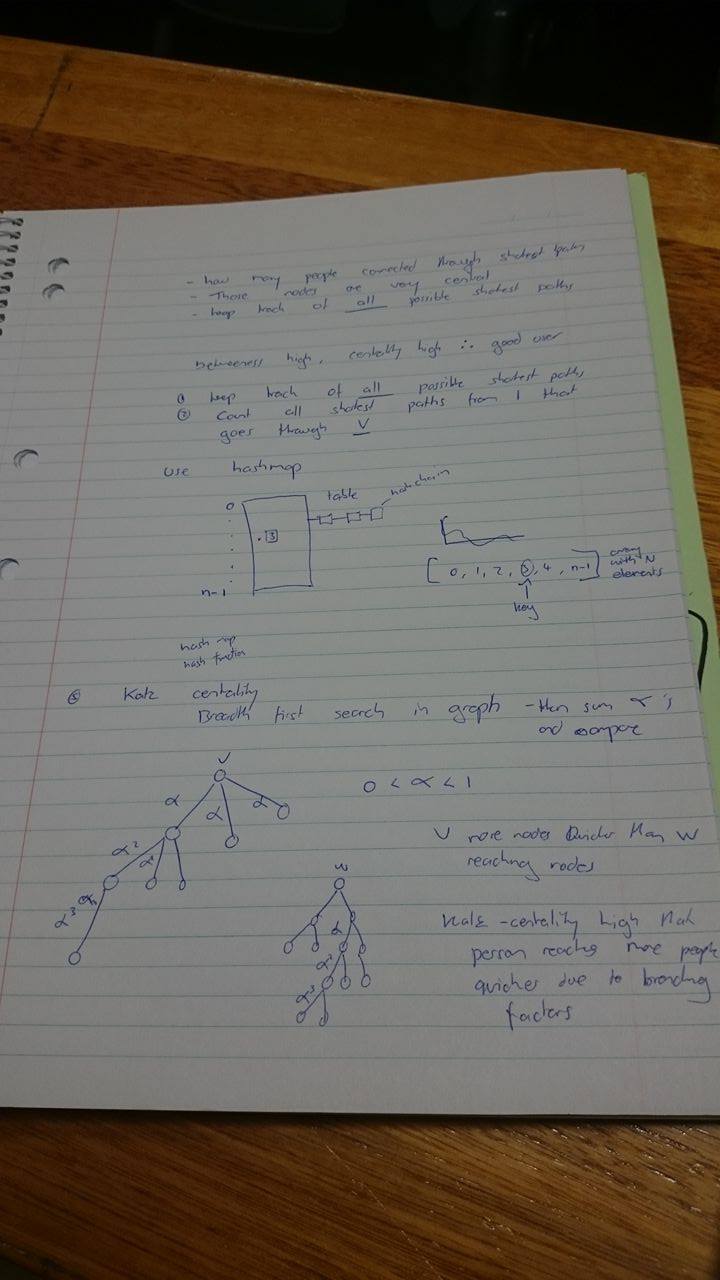 - how many people connected through shortest paths
- Those nodes are very central
- keep track of all possible shortest paths
betweeness high, centality high ∴ good user
① keep track of all possible shotest paths
② Count all shotest paths from 1 that
goes through V
use hashmap
0
table
hash chain
3
n-1
[0, 1, 2, 3, 4, n-1]
array
with N
elements
key
hash map
hash function
Katz centality
Breadth first search in graph - then sum α's
and compare
V
α
α
α
α²
α²
α³
0 < α < 1
V more nodes Quicker than W
reaching nodes
W
α
α²
α³
Katz - centality high that
person reaches more people
quicker due to branching
factors